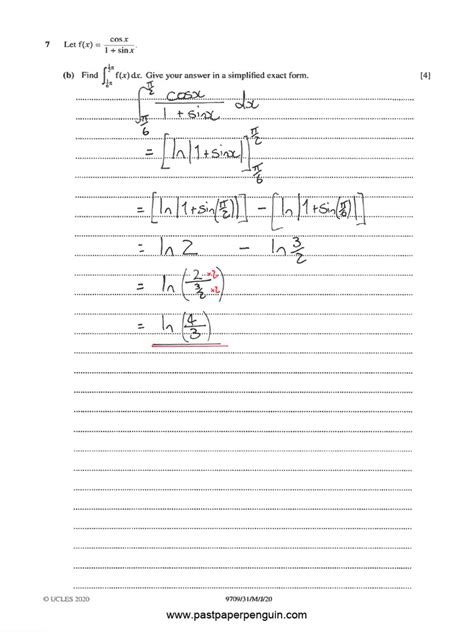 7 Let f(x) = cos x / 1 + sin x.
(b) Find ∫_{1/6 π}^{1/2 π} f(x) dx. Give your answer in a simplified exact form. [4]
∫_{π/6}^{π/2} cosx / 1 + sinx dx
= [ln|1+sinx|]_{π/6}^{π/2}
= [ln|1+sin(π/2)|] - [ln|1+sin(π/6)|]
= ln 2 - ln 3/2
= ln(2 ×2 / 3/2 ×2)
= ln(4/3)
© UCLES 2020 9709/31/M/J/20
www.pastpaperpenguin.com